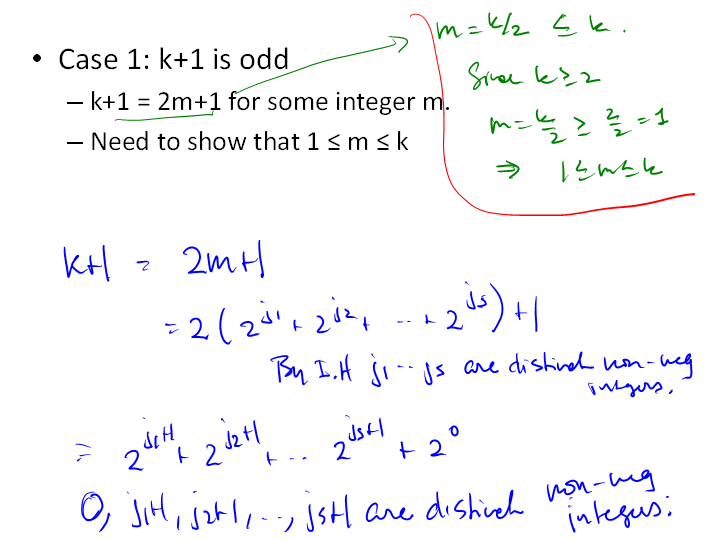 • Case 1: k+1 is odd
– k+1 = 2m+1 for some integer m.
– Need to show that 1 ≤ m ≤ k
m = k/2 ≤ k.
Since k ≥ 2
m = k/2 ≥ 2/2 = 1
⇒ 1 ≤ m ≤ k
k+1 = 2m+1
= 2 ( 2^j1 + 2^j2 + ... + 2^js ) + 1
By I.H j1 ... js are distinct non-neg
integers.
= 2^j1+1 + 2^j2+1 + ... 2^js+1 + 2^0
0, j1+1, j2+1, ..., js+1 are distinct non-neg
integers.